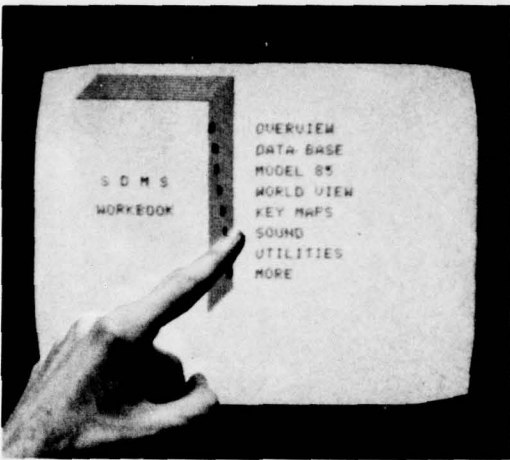 S D M S
WORKBOOK
OVERVIEW
DATA BASE
MODEL 85
WORLD VIEW
KEY MAPS
SOUND
UTILITIES
MORE